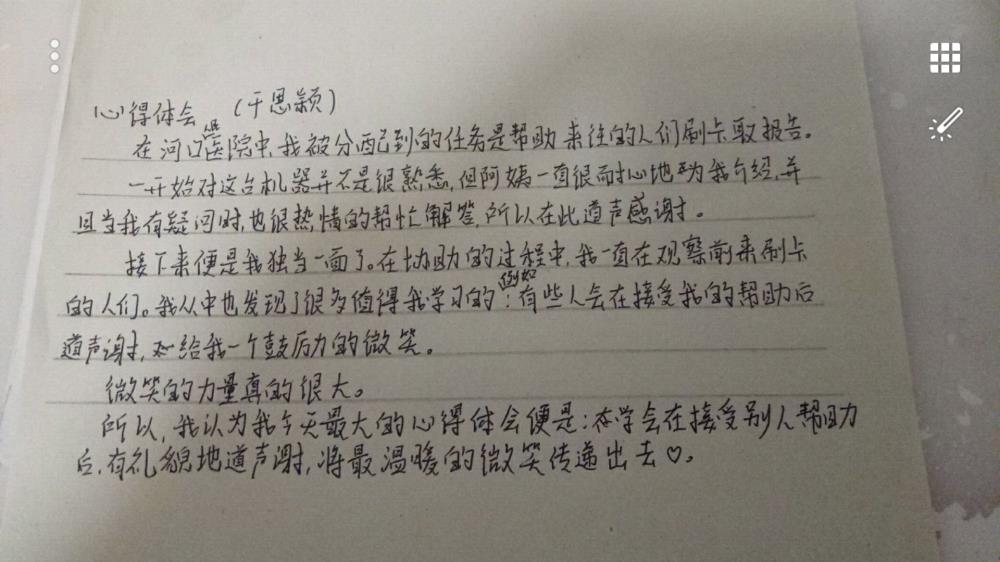 心得体会 (于思颖)
在河口医院中,我被分配到的任务是帮助来往的人们刷卡取报告。
一开始对这台机器并不是很熟悉,但阿姨一直很耐心地为我介绍,并
且当我有疑问时,也很热情的帮忙解答,所以在此道声感谢。
接下来便是我独当一面了。在协助的过程中,我一直在观察前来刷卡
的人们。我从中也发现了很多值得我学习的:例如有些人会在接受我的帮助后
道声谢,给我一个鼓厉的微笑。
微笑的力量真的很大。
所以,我认为我今天最大的心得体会便是:学会在接受别人帮助
后,有礼貌地道声谢,将最温暖的微笑传递出去♡。